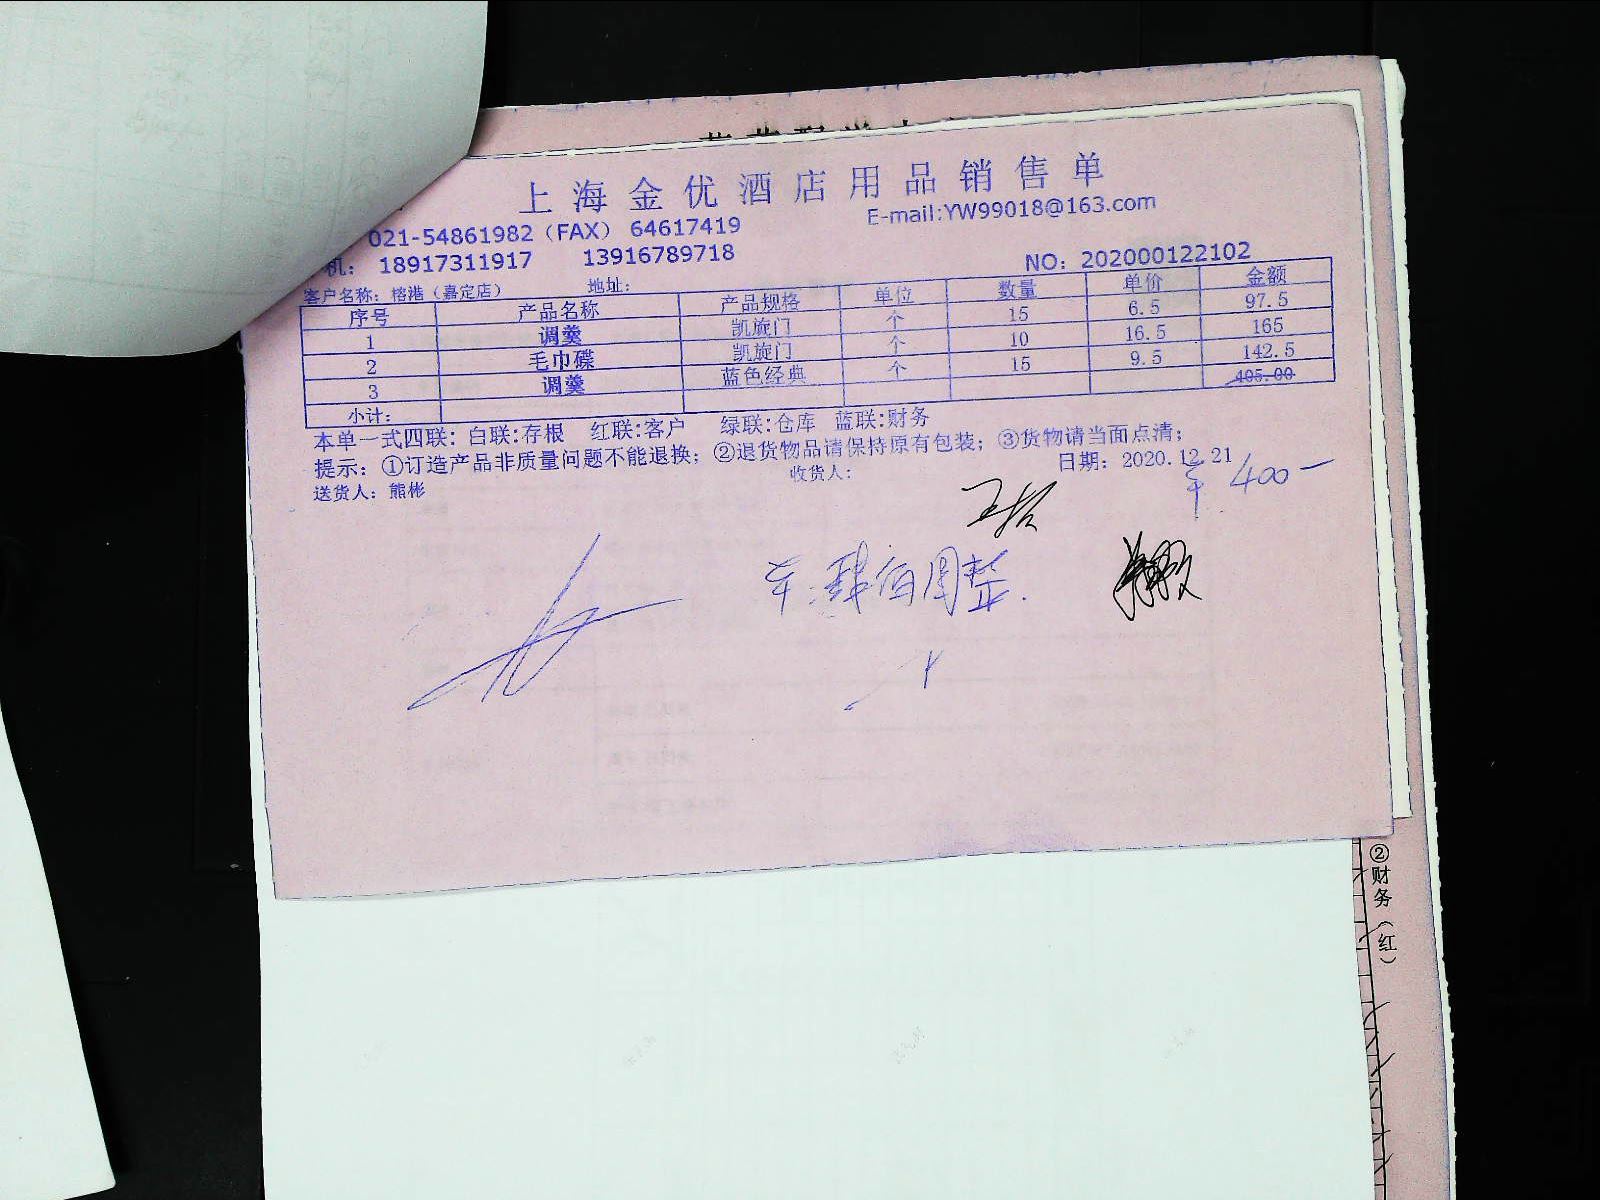 上海金优酒店用品销售单
021-54861982（FAX） 64617419
E-mail:YW99018@163.com
机： 18917311917 13916789718
NO：202000122102
客户名称：榕港（嘉定店） 地址：
序号 产品名称 产品规格 单位 数量 单价 金额
1 调羹 凯旋门 个 15 6.5 97.5
2 毛巾碟 凯旋门 个 10 16.5 165
3 调羹 蓝色经典 个 15 9.5 142.5
小计： 405.00
本单一式四联：白联:存根 红联:客户 绿联:仓库 蓝联:财务
提示：①订造产品非质量问题不能退换；②退货物品请保持原有包装；③货物请当面点清；
送货人：熊彬 收货人： 日期：2020.12.21
¥ 400-
肆佰圆整.
②财务（红）